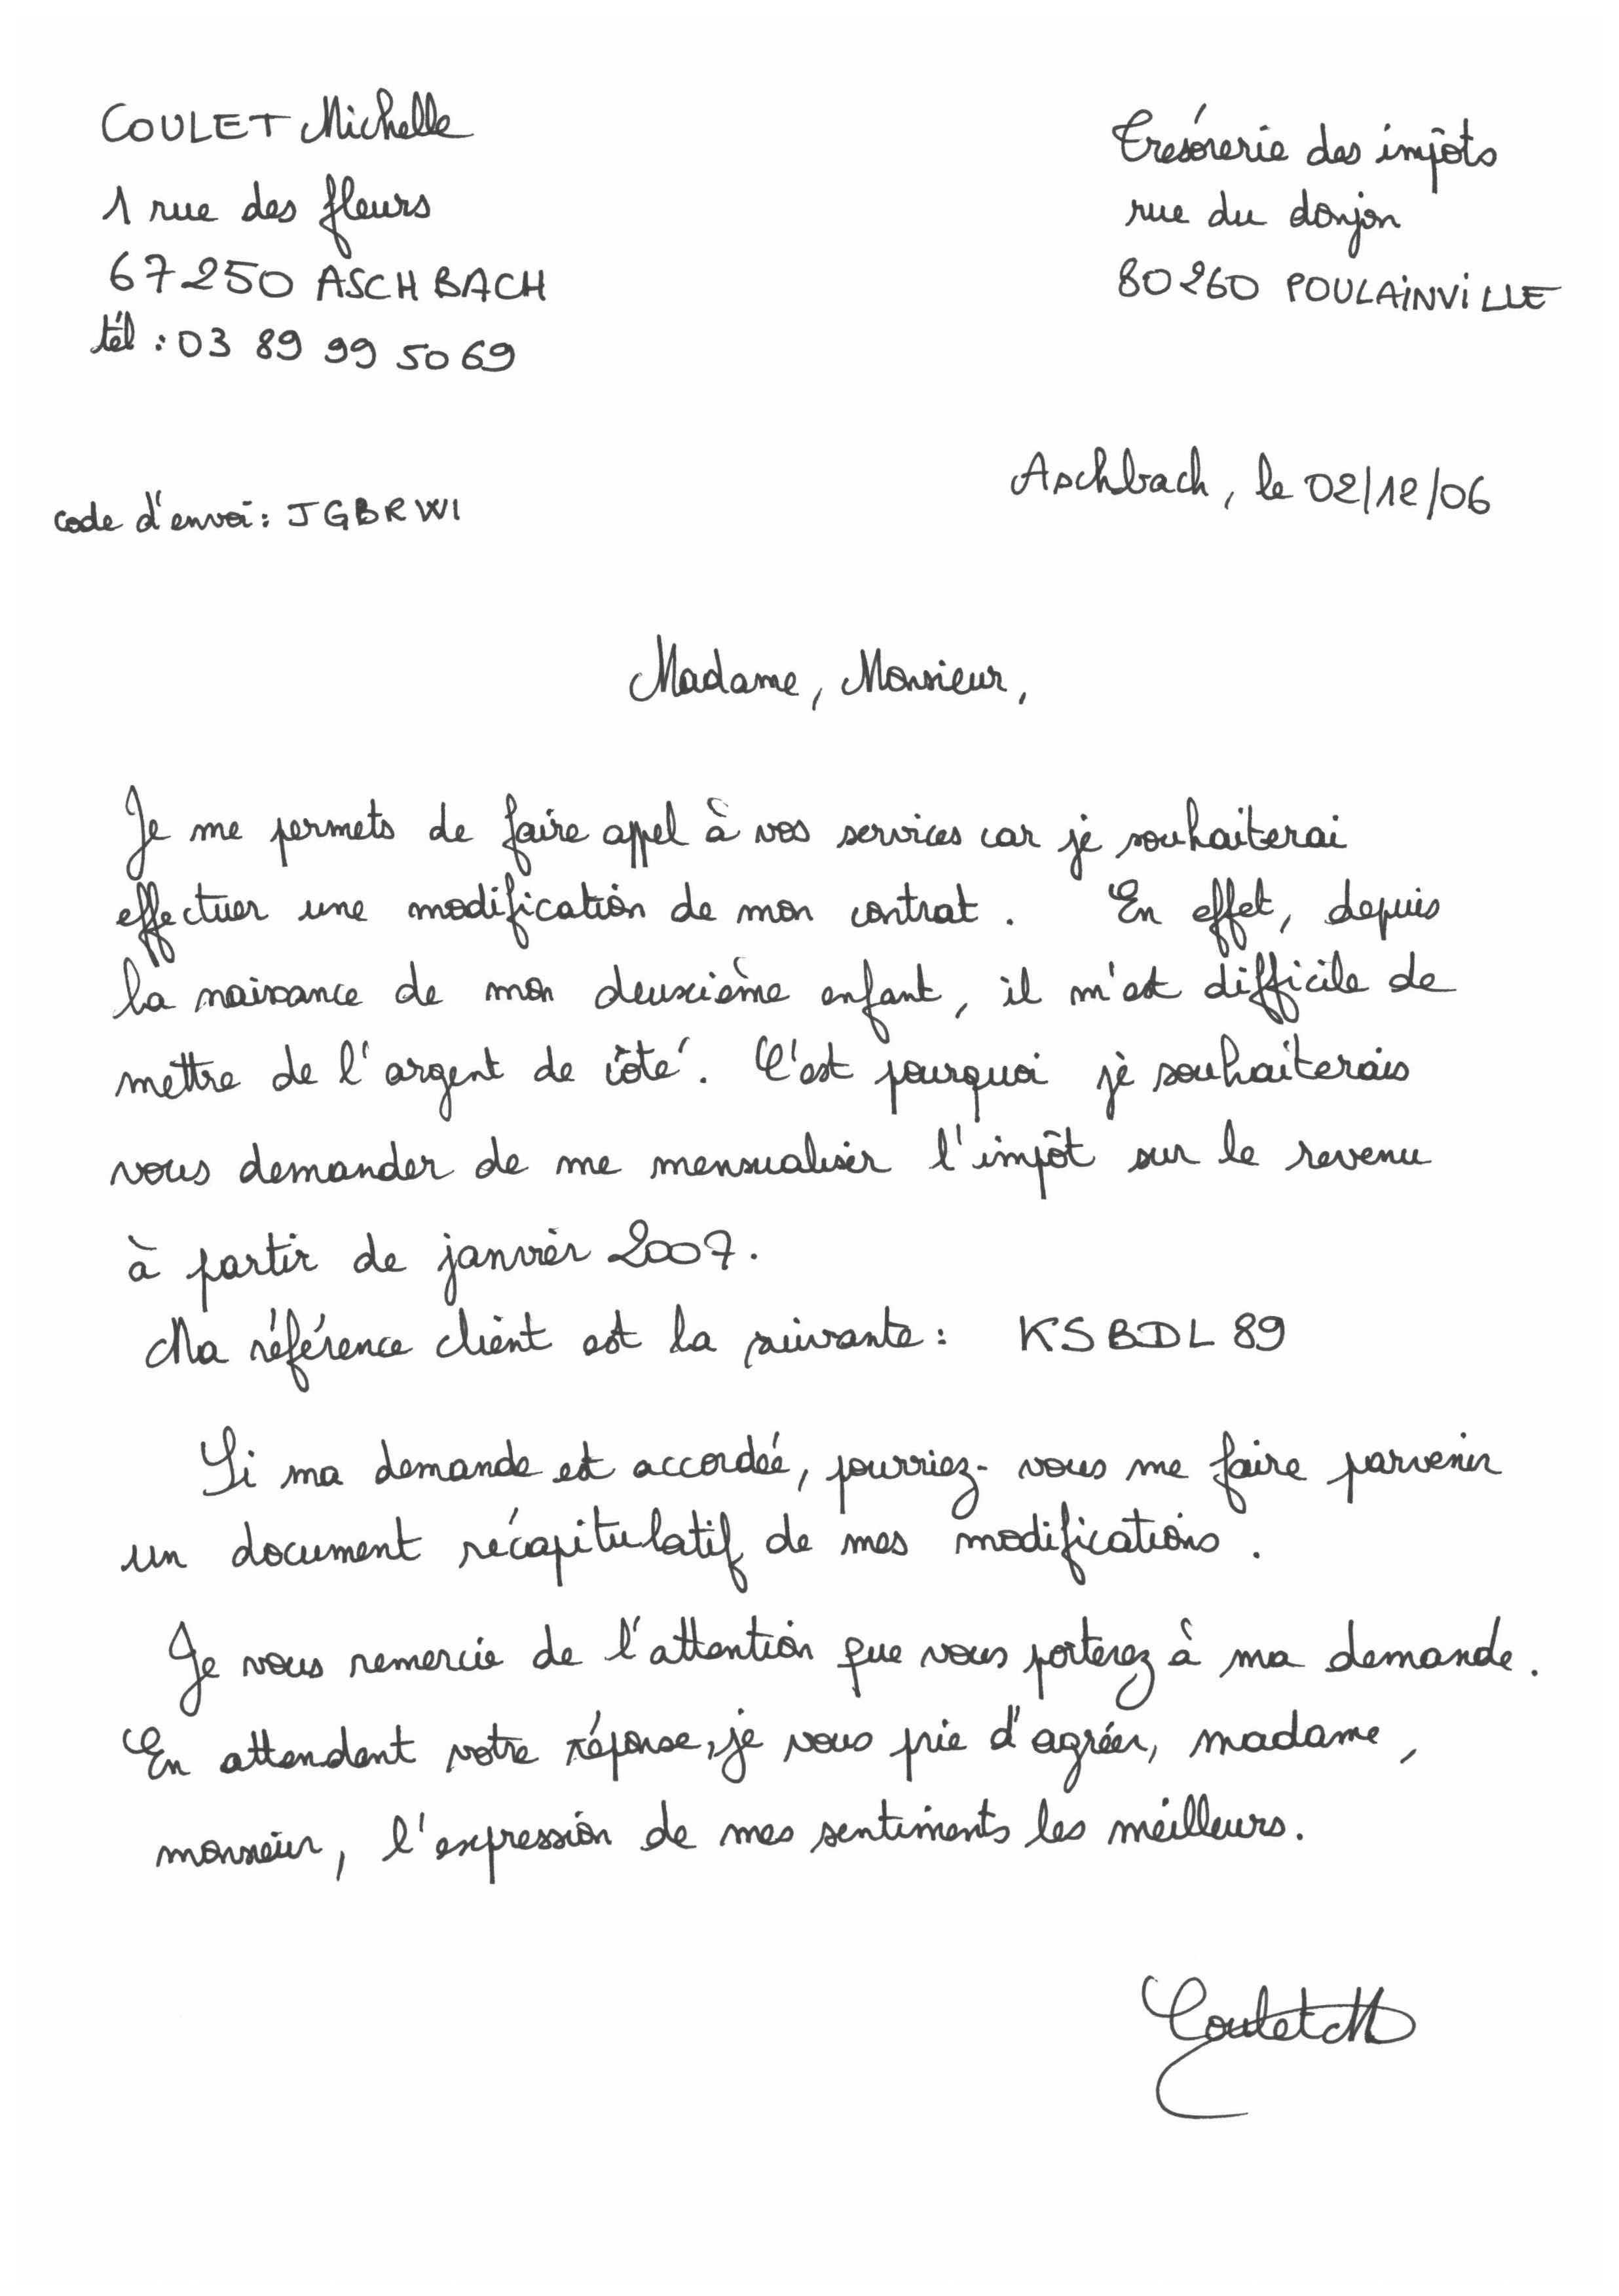 COULET Michelle
1 rue des fleurs
67250 ASCHBACH
tél : 03 89 99 50 69
Trésorerie des impôts
rue du donjon
80260 POULAINVILLE
Aschbach, le 02/12/06
code d'envoi : JGBRWI
Madame, Monsieur,
Je me permets de faire appel à vos services car je souhaiterai
effectuer une modification de mon contrat. En effet, depuis
la naissance de mon deuxième enfant, il m'est difficile de
mettre de l'argent de côté. C'est pourquoi je souhaiterais
vous demander de me mensualiser l'impôt sur le revenu
à partir de janvier 2007.
Ma référence client est la suivante : KSBDL 89
Si ma demande est accordée, pourriez-vous me faire parvenir
un document récapitulatif de mes modifications.
Je vous remercie de l'attention que vous porterez à ma demande.
En attendant votre réponse, je vous prie d'agréer, madame,
monsieur, l'expression de mes sentiments les meilleurs.
Coulet M